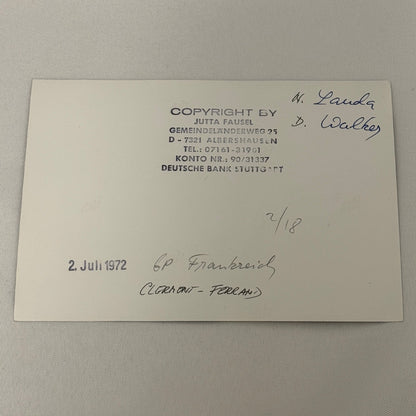 COPYRIGHT BY
JUTTA FAUSEL
GEMEINDELÄNDERWEG 25
D - 7321 ALBERSHAUSEN
TEL.: 07161-31961
KONTO NR.: 90/31337
DEUTSCHE BANK STUTTGART
N. Lauda
D. Walker
2/18
2. Juli 1972
GP Frankreich
CLERMONT - FERRAND